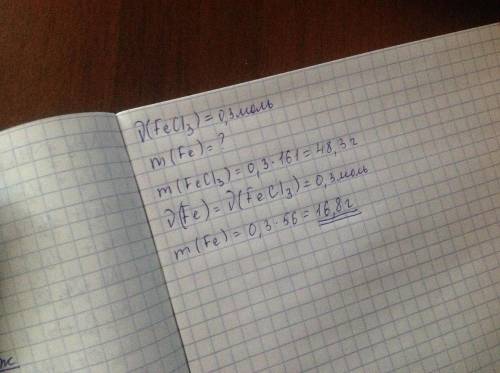 ν(FeCl₃) = 0,3 моль
m(Fe) = ?
m(FeCl₃) = 0,3·161 = 48,3 г
ν(Fe) = ν(FeCl₃) = 0,3 моль
m(Fe) = 0,3·56 = 16,8 г
ж